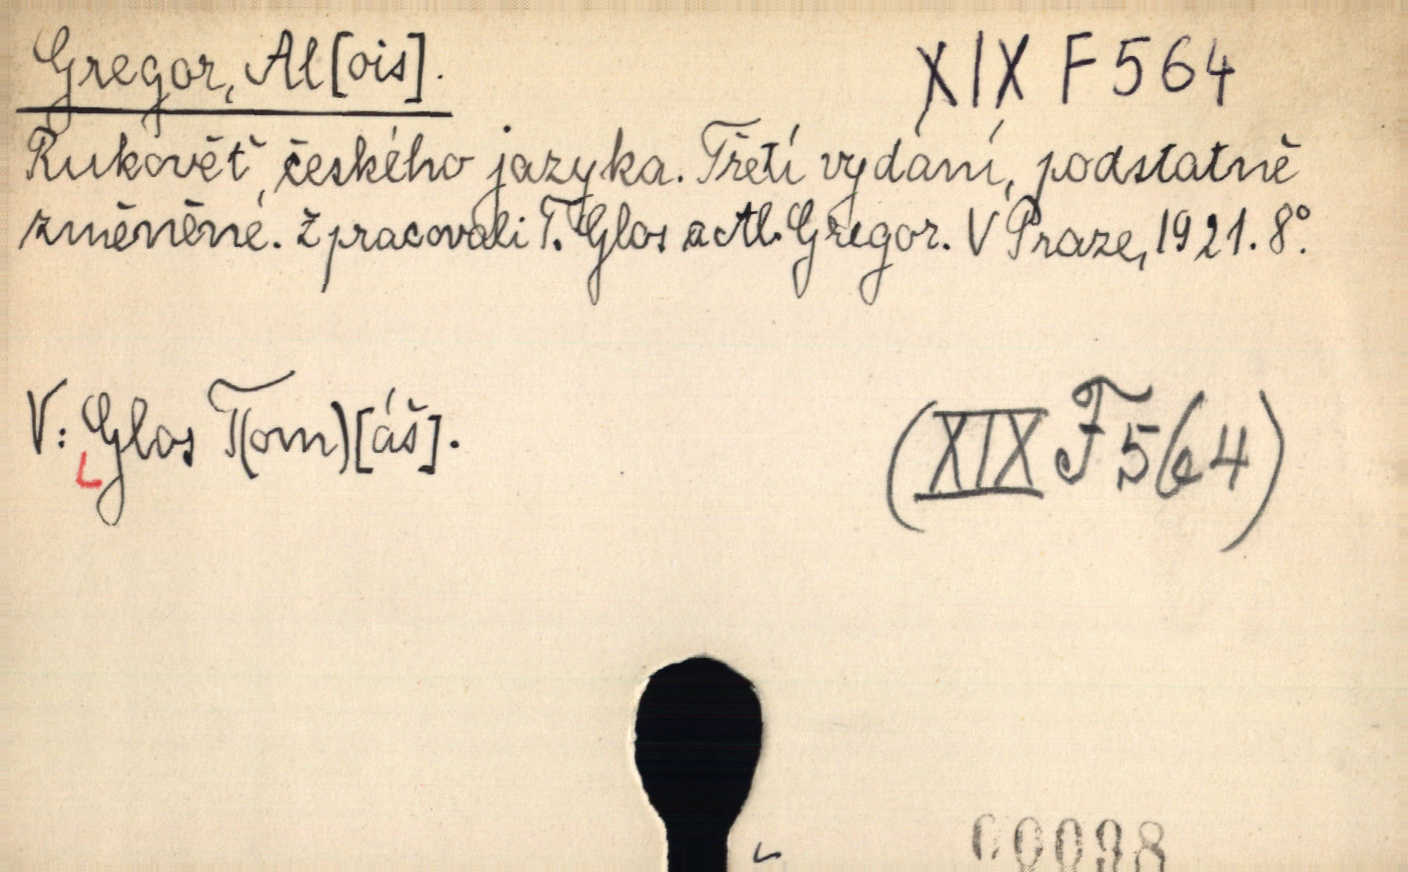 Gregor, Al[ois].
XIX F 564
Rukověť českého jazyka. Třetí vydání, podstatně
změněné. Zpracovali T. Glos a Al. Gregor. V Praze, 1921. 8°.
V: Glos T(om)[áš].
(XIX F 564)